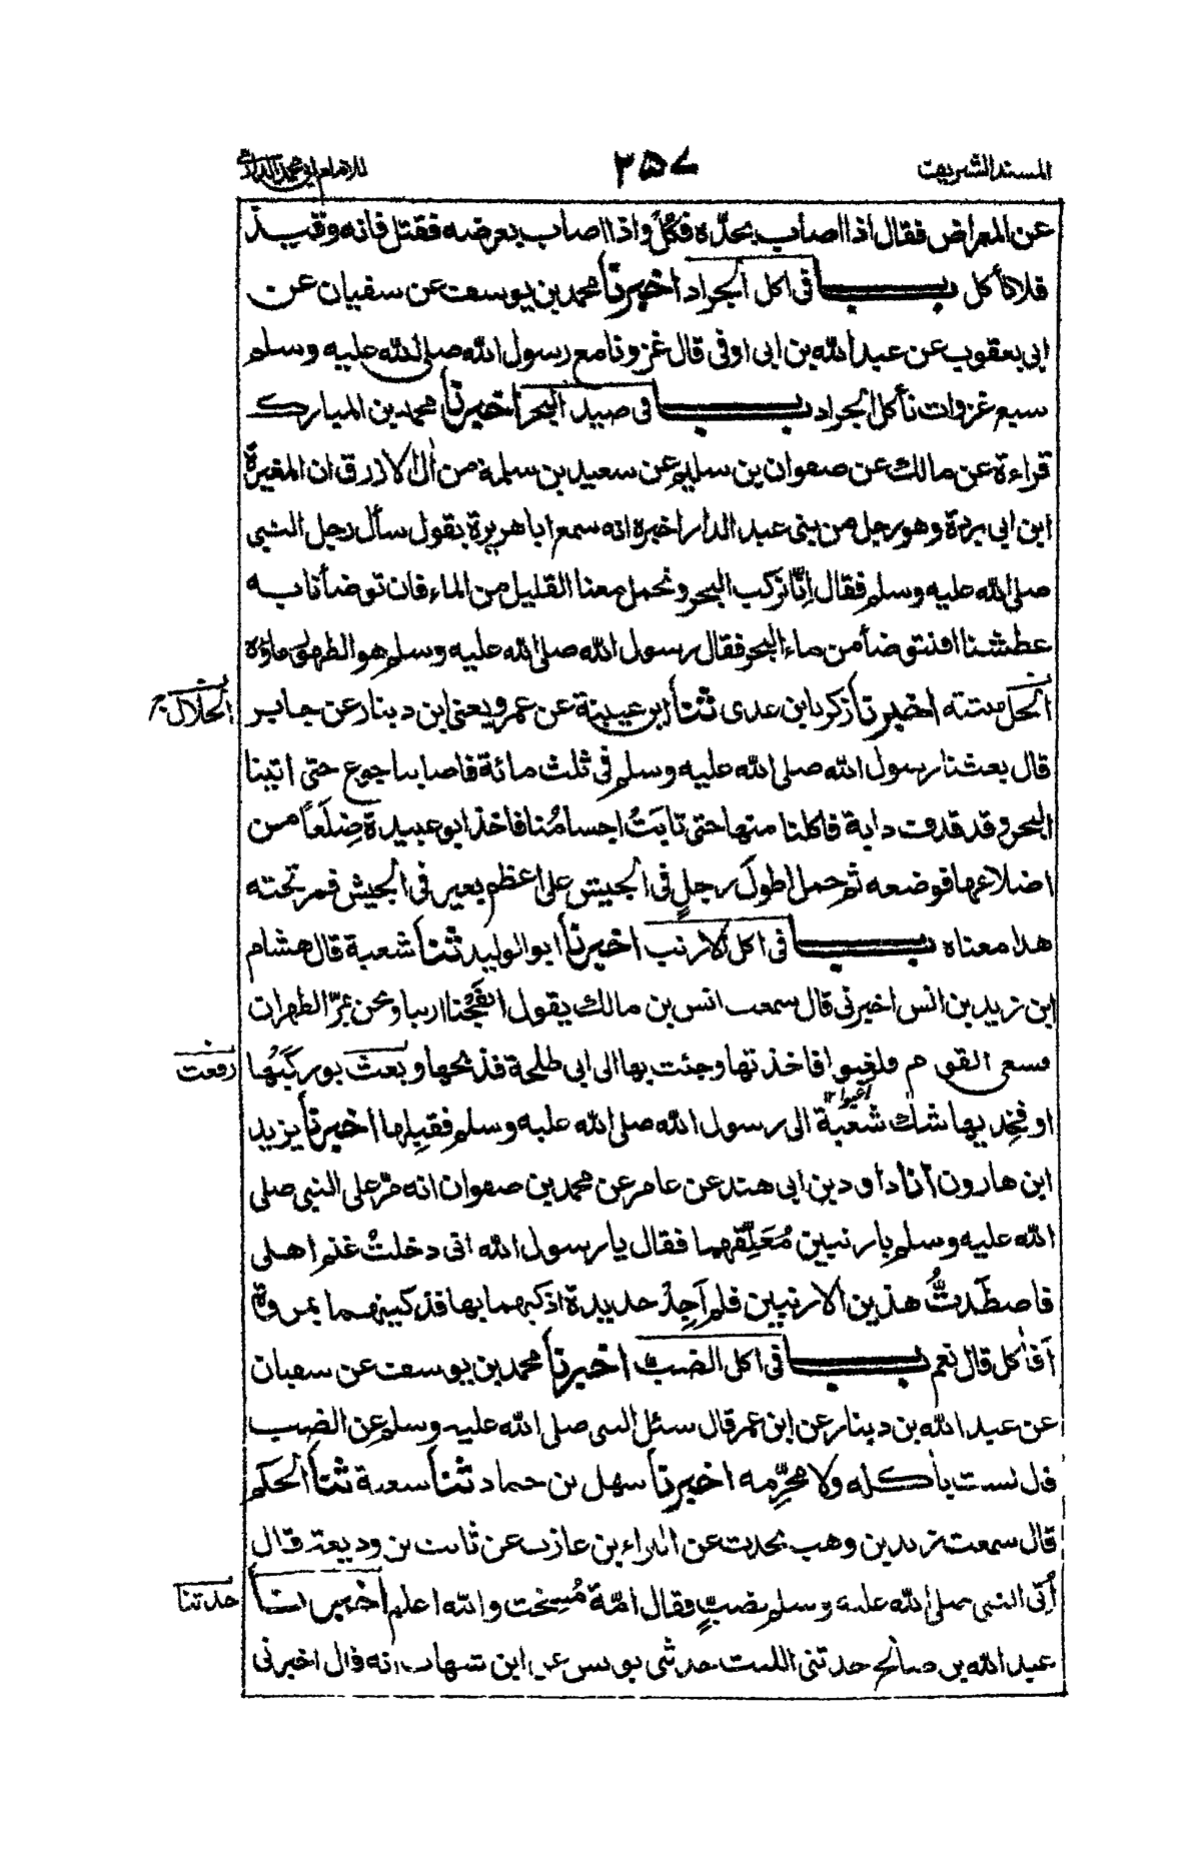 المسند الشريف
٢٥٧
للامام ابى محمد الدارمى
عن المعراض فقال اذا اصاب بحدّه فكُلْ واذا اصاب بعرضه فقتل فانه وقيذ
فلا تأكل باب فى اكل الجراد اخبرنا محمد بن يوسف عن سفيان عن
ابى يعفور عن عبد الله بن ابى اوفى قال غزونا مع رسول الله صلى الله عليه وسلم
سبع غزوات نأكل الجراد باب فى صيد البحر اخبرنا محمد بن المبارك
قراءة عن مالك عن صفوان بن سليم عن سعيد بن سلمة من اٰل الازرق ان المغيرة
ابن ابى بردة وهو رجل من بنى عبد الدار اخبره انه سمع ابا هريرة يقول سأل رجل النبى
صلى الله عليه وسلم فقال اِنّا نركب البحر ونحمل معنا القليل من الماء فان توضأنا به
عطشنا افنتوضأ من ماء البحر فقال رسول الله صلى الله عليه وسلم هو الطهور ماؤه
الحل ميتته اخبرنا زكريا بن عدى ثنا ابن عيينة عن عمرو يعنى ابن دينار عن جابر
الحلال
قال بعثنا رسول الله صلى الله عليه وسلم فى ثلث مائة فاصابنا جوع حتى اتينا
البحر وقد قذفت دابة فاكلنا منها حتى ثابَتْ اجسامُنا فاخذ ابو عبيدة ضِلَعاً من
اضلاعها فوضعه ثم حمل اطولَ رجلٍ فى الجيش على اعظم بعير فى الجيش فمر تحته
هذا معناه باب فى اكل الارنب اخبرنا ابو الوليد ثنا شعبة قال هشام
ابن زيد بن انس اخبرنى قال سمعت انس بن مالك يقول انفَجْنا ارنبا ونحن بمرّ الظهران
فسعى القوم فلغبوا فاخذتها وجئت بها الى ابى طلحة فذبحها وبعث بوركَيْها
رفعت
أعيوا ١٢
او فخذيها شك شعبة الى رسول الله صلى الله عليه وسلم فقبِلها اخبرنا يزيد
ابن هارون انا داود بن ابى هند عن عامر عن محمد بن صفوان انه مرّ على النبى صلى
الله عليه وسلم بارنبين مُعَلِّقَهما فقال يا رسول الله انى دخلتُ غنم اهلى
فاصطَدتُّ هذين الارنبين فلم اَجِدْ حديدة اذكيهما بها فذكيتهما بمروة
اَفاٰكل قال نعم باب فى اكل الضب اخبرنا محمد بن يوسف عن سفيان
عن عبد الله بن دينار عن ابن عمر قال سئل النبى صلى الله عليه وسلم عن الضب
فقال لست باٰكله ولا محرِّمه اخبرنا سهل بن حماد ثنا شعبة ثنا الحكم
قال سمعت زيد بن وهب يحدث عن البراء بن عازب عن ثابت بن وديعة قال
اُتِى النبى صلى الله عليه وسلم بضبٍّ فقال امّة مُسِخت والله اعلم اخبرنا
حدثنا
عبد الله بن صالح حدثنى الليث حدثنى يونس عن ابن شهاب انه قال اخبرنى